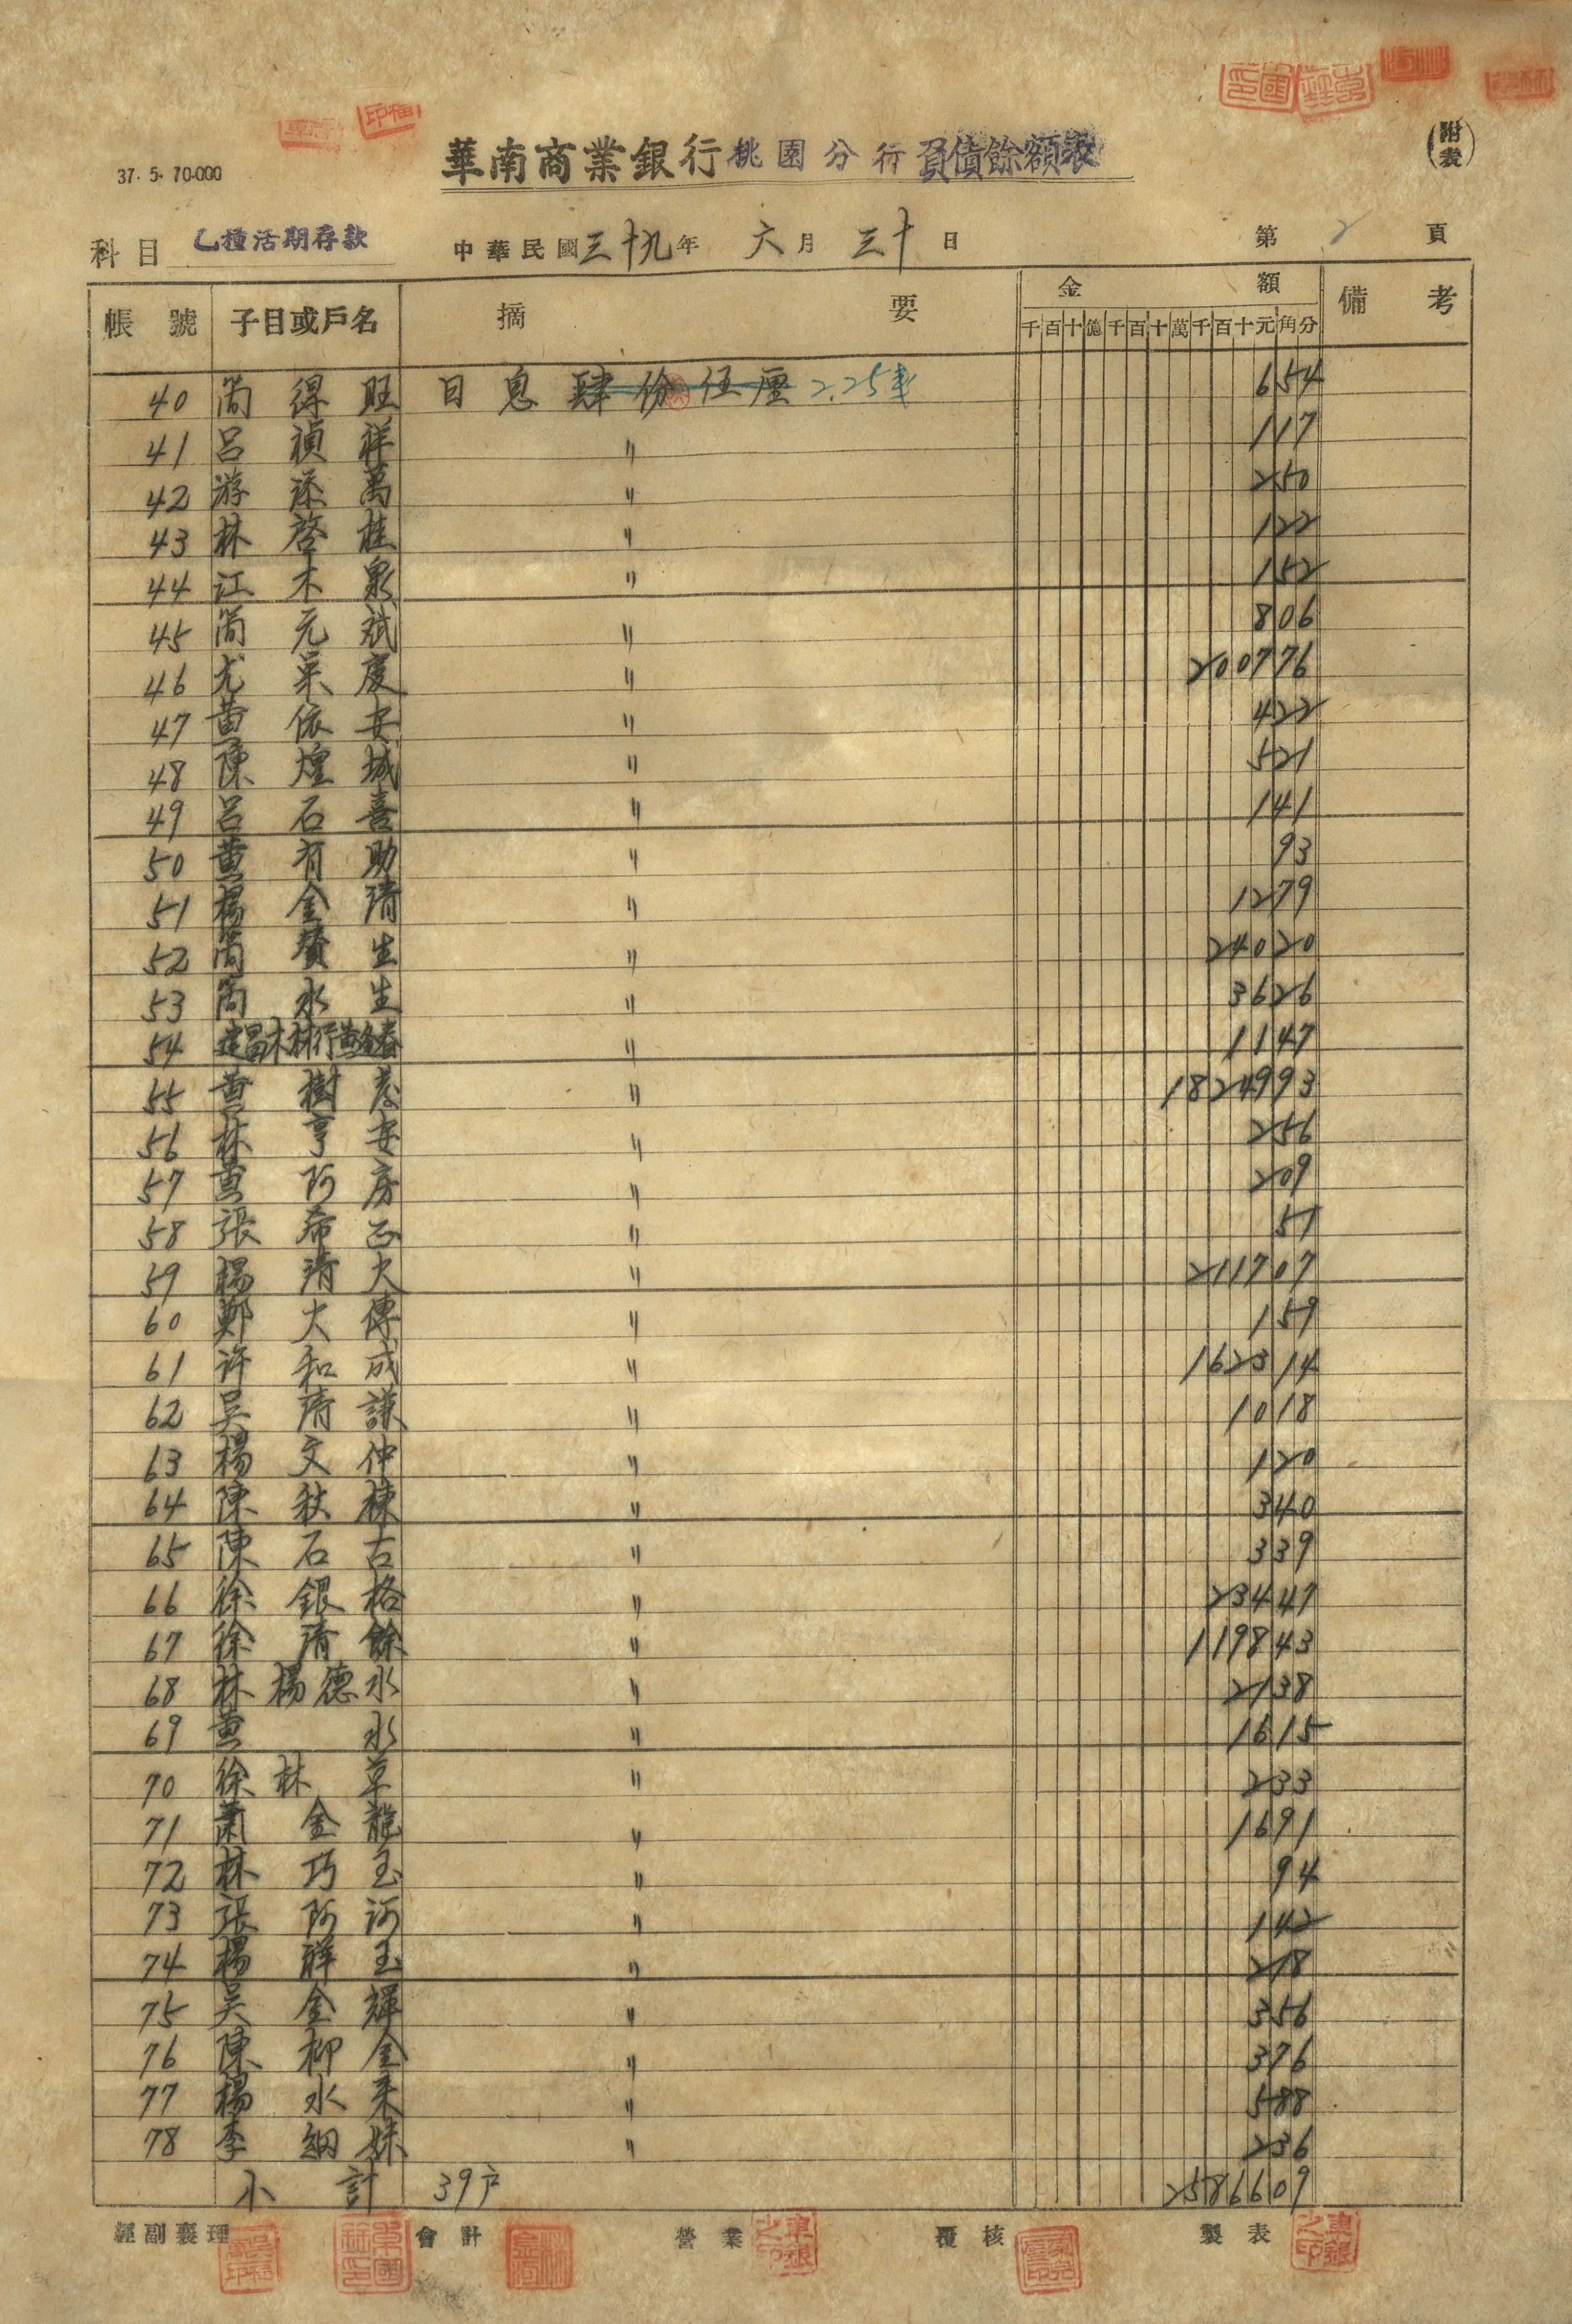 (附表)
37. 5. 70.000
華南商業銀行桃園分行負債餘額表
科目 乙種活期存款 中華民國三十九年 六月 三十日 第 2 頁
帳號 子目或戶名 摘要 金額 備考
千百十億千百十萬千百十元角分
40 簡得旺 日息肆份伍厘 2.25 654
41 呂禎祥 〃 117
42 游添萬 〃 250
43 林啓桂 〃 122
44 江木泉 〃 152
45 簡元斌 〃 806
46 尤 慶 〃 200776
47 黃依安 〃 422
48 陳煌城 〃 521
49 呂石喜 〃 141
50 黃有助 〃 93
51 楊金清 〃 1279
52 簡贊生 〃 24020
53 簡水生 〃 3626
54 建昌木材行黃金春 〃 1147
55 黃樹 〃 1824993
56 林亨安 〃 256
57 黃阿房 〃 209
58 張希 〃 57
59 楊清火 〃 211707
60 鄭大傳 〃 159
61 許和成 〃 162314
62 吴清謙 〃 1018
63 楊文仲 〃 120
64 陳秋棟 〃 340
65 陳石古 〃 339
66 徐銀格 〃 23447
67 徐清餘 〃 119843
68 林楊德水 〃 2138
69 黃水 〃 1615
70 徐林草 〃 233
71 蕭金龍 〃 1691
72 林巧玉 〃 94
73 張阿河 〃 142
74 楊祥玉 〃 278
75 吴金輝 〃 356
76 陳柳金 〃 376
77 楊水來 〃 588
78 李細妹 〃 236
小計 39戶 2586609
經副襄理 會計 營業 覆核 製表